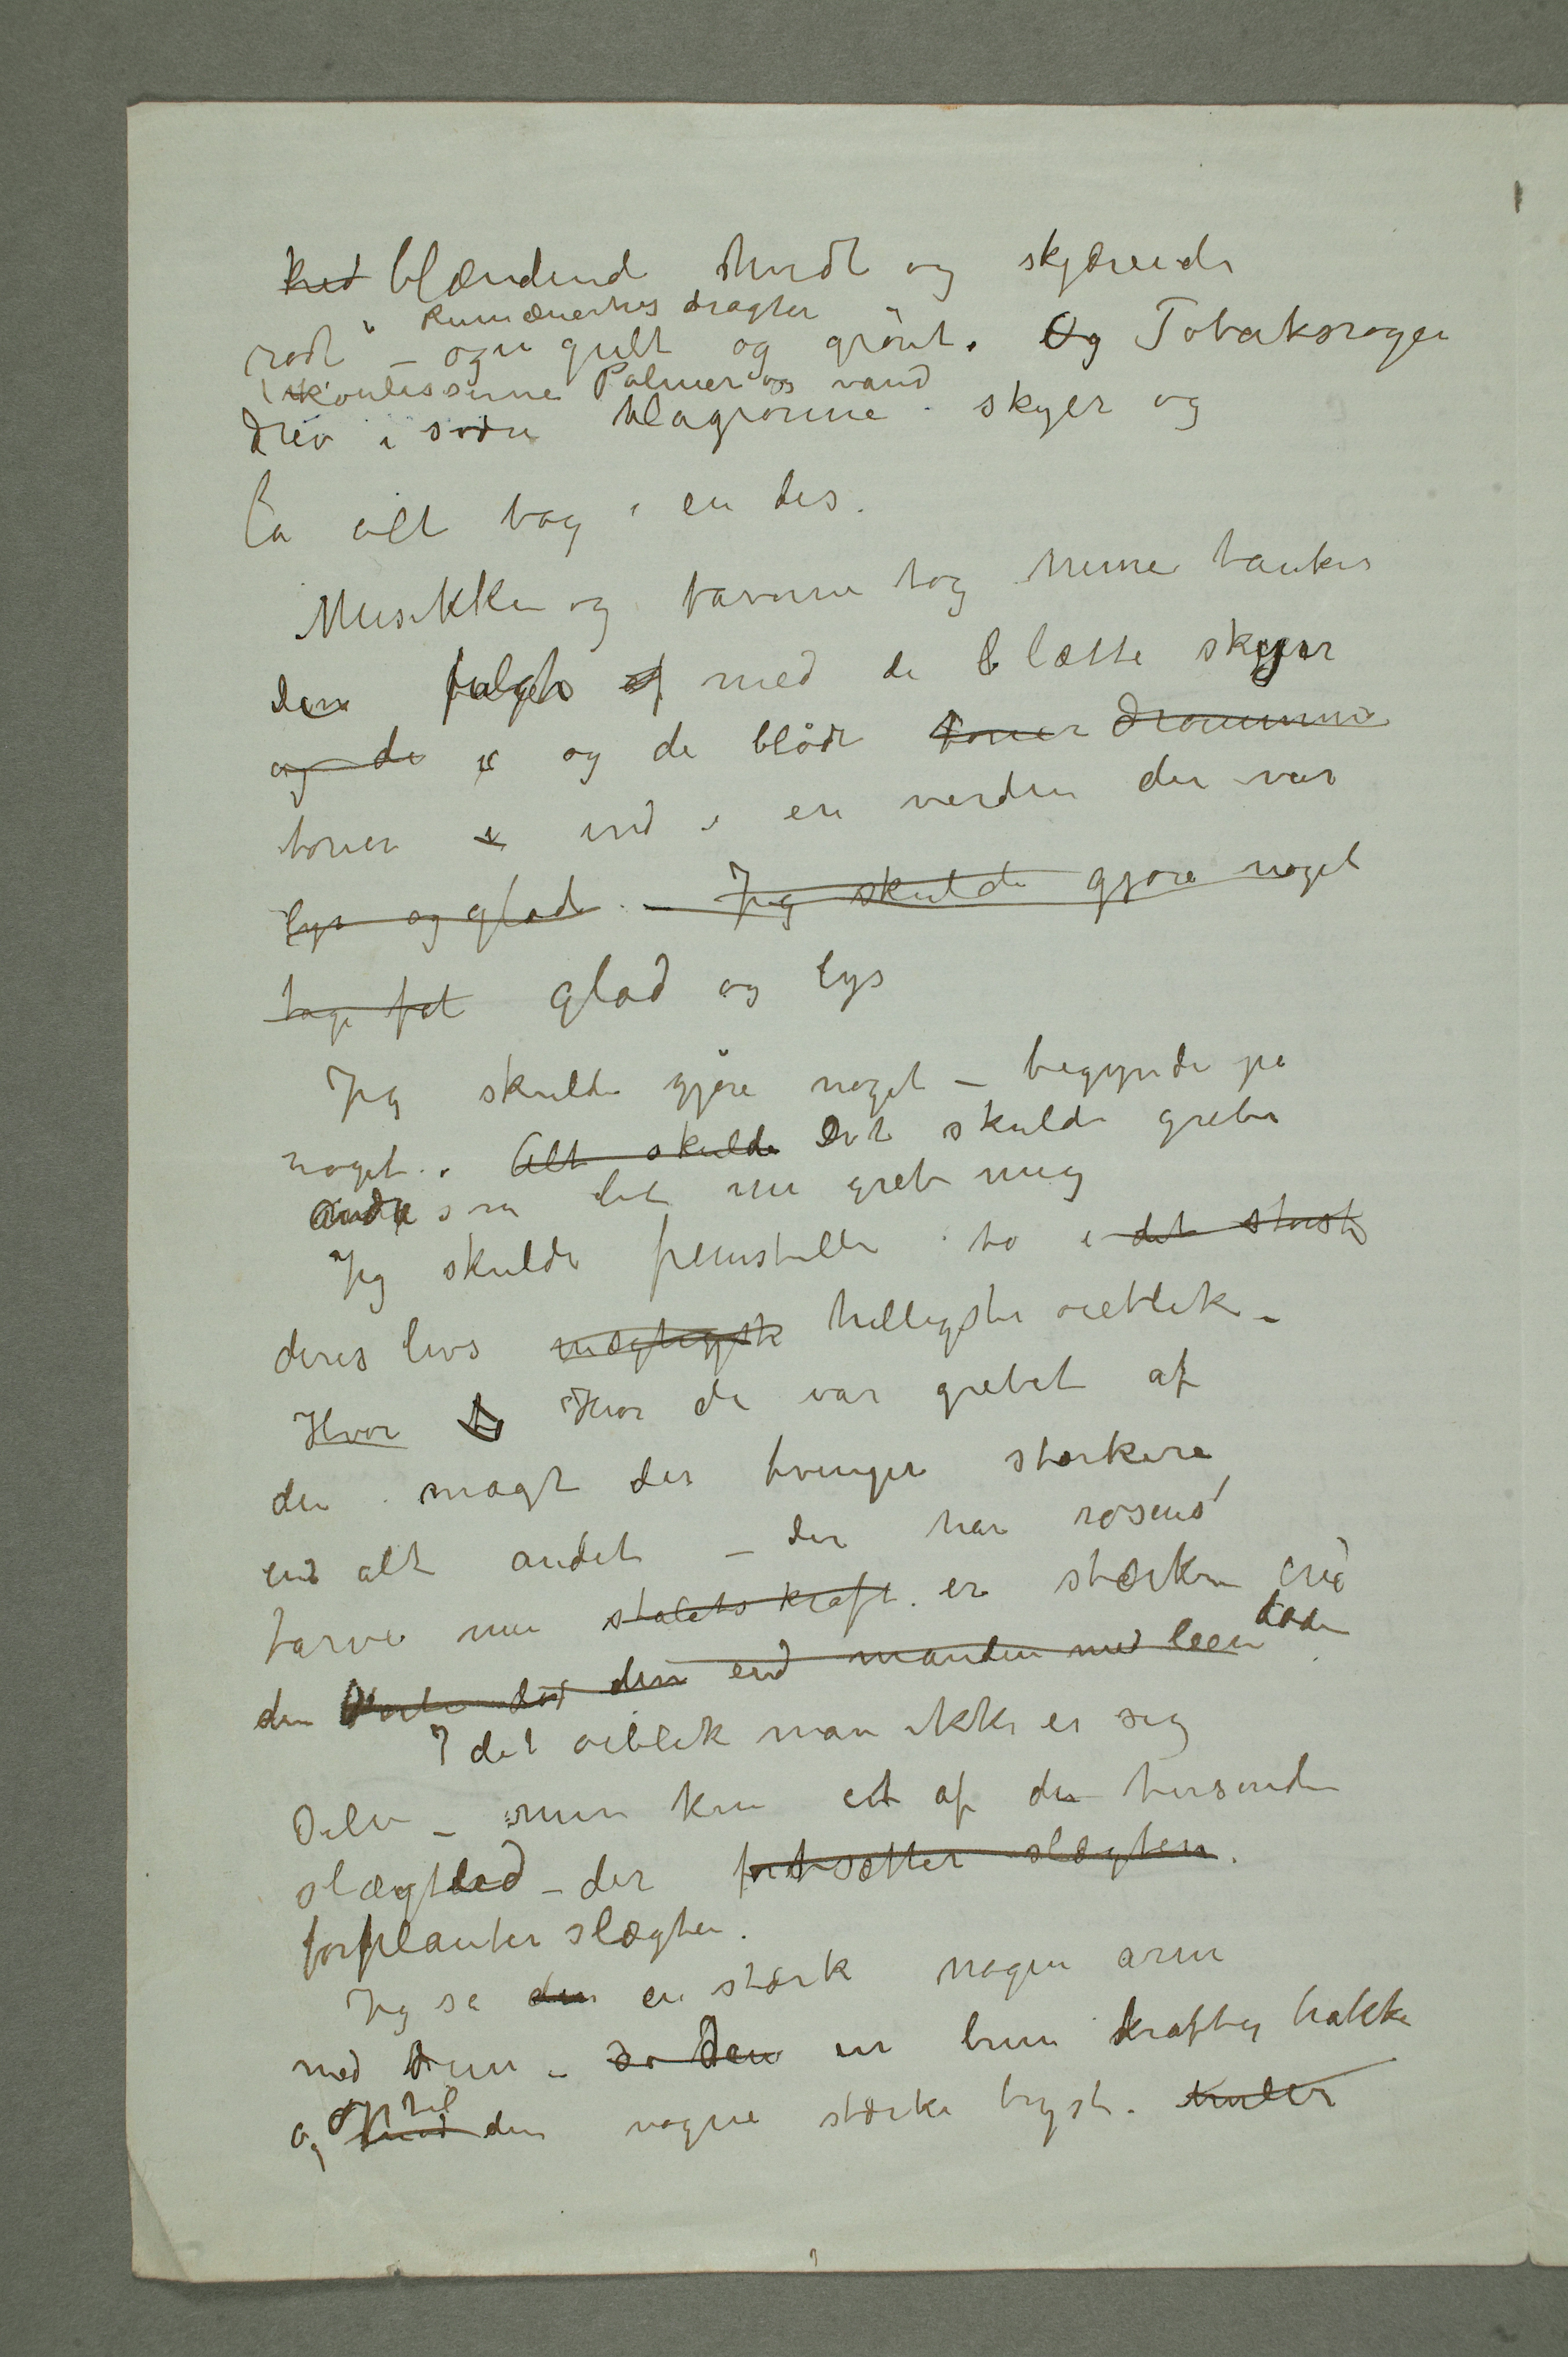 hvid blændende hvidt og skjærende
i Rumænernes dragter
rødt – ogu gult og grönt. Og Tobaksrøgen
i koulisserne Palmer og vand
drev i svære blagrønne skyer og
la alt bag i en dis.
Musikken og farverne tog mine tanker
den fulgte af med de lætte skyer
og de og de bløde toner Drømmene
toner i ind i en verden der var
lys og glad. – Jeg skulde gjøre noget
tage fat glad og lys
Jeg skulde gjøre noget – begynde på
noget. Alt skulde Det skulde gribe
andre som det nu greb mig
Jeg skulde fremstille to i det største
deres livs mægtigste helligste øieblik –
Hvor to Hvor de var grebet af
den magt der tvinger stærkere
end alt andet – der har rosens
farve men stalets kraft er stærkere end
den end manden med leen døden
I det øieblik man ikke er sig
selv – men kun et af de tusende
slægtled – der fortsætter slægten.
forplanter slægten.
Jeg sa den en stærk nøgen arm
med dun – sa den en brun kraftig nakke
op til
og mod den nøgne stærke bryst.